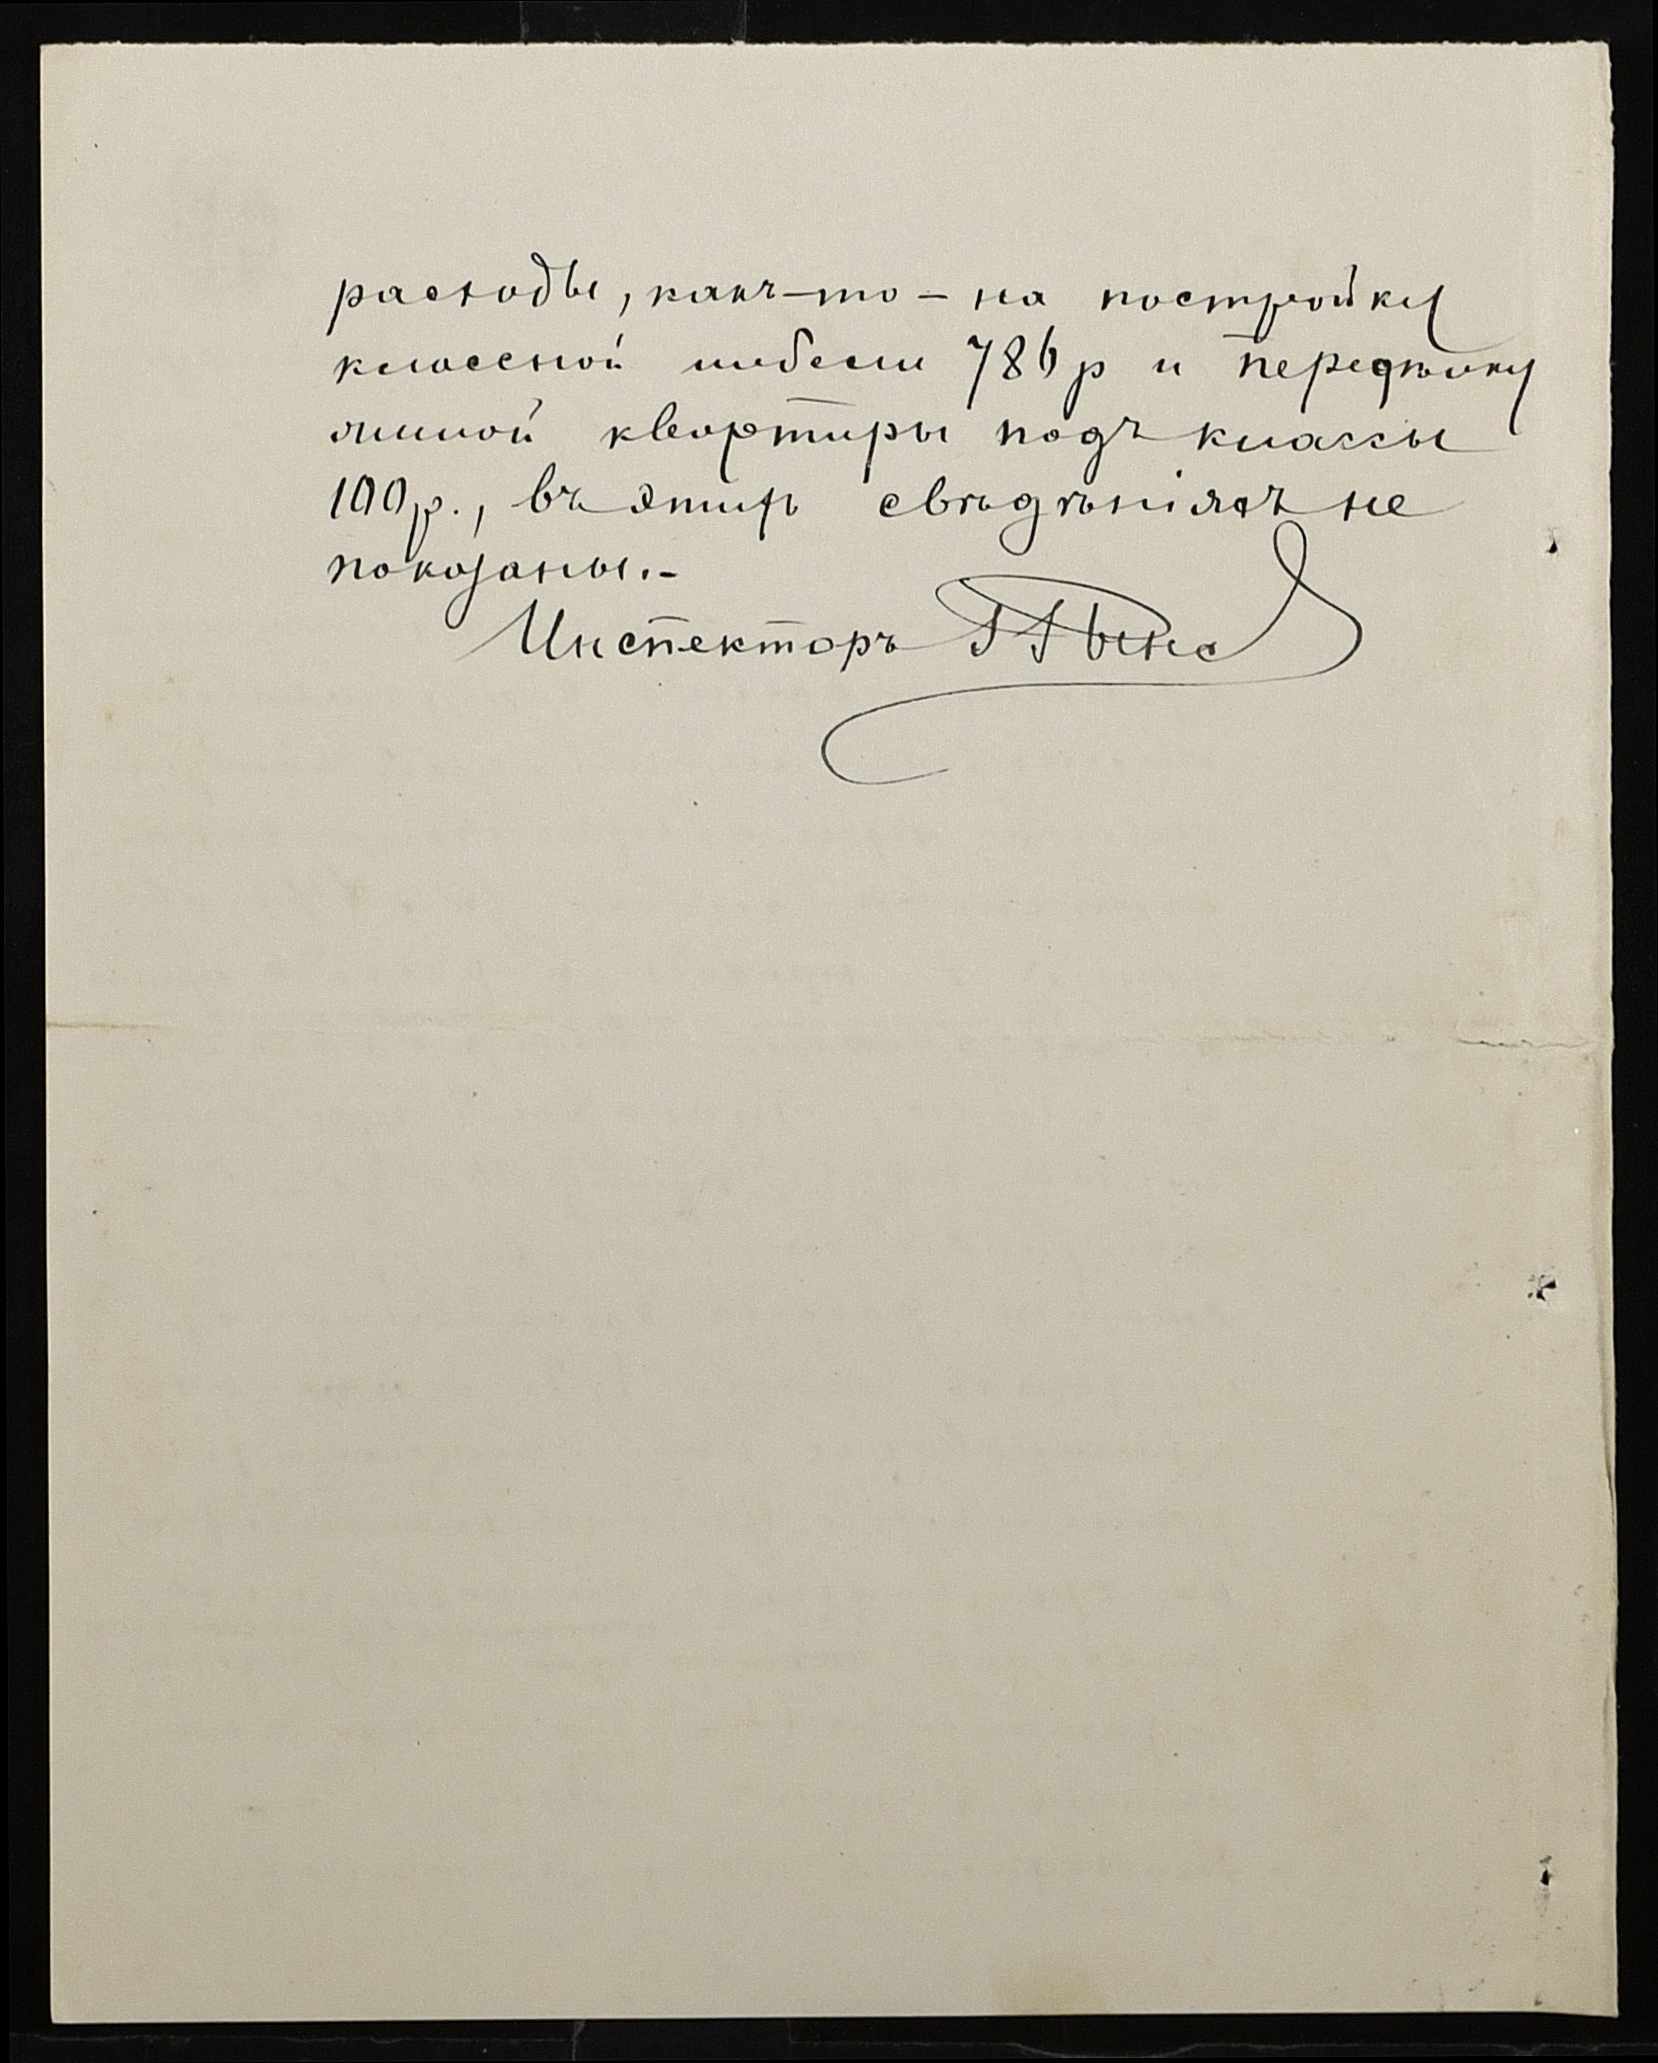 расходы, какъ-то - на постройку
классной мебели 786 р и передѣлку
жилой квартиры подъ классы
100 р., въ этихъ свѣдѣніяхъ не
показаны.-
Инспекторъ